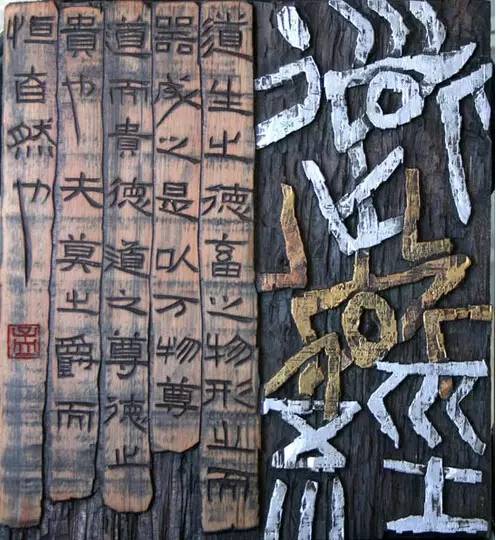 道德經
道生之德畜之物形之而
器成之是以万物尊
道而貴德道之尊德之
貴也夫莫之爵而
恒自然也